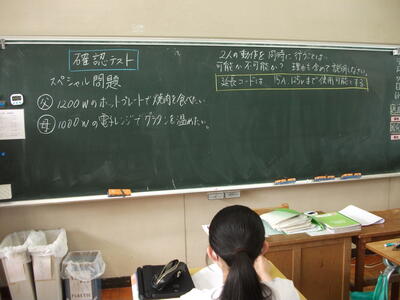 確認テスト
スペシャル問題
父 1200Wのホットプレートで焼肉を食べたい。
母 1000Wの電子レンジでグラタンを温めたい。
2人の動作を同時に行うことは、
可能か不可能か? 理由も含めて説明しなさい。
延長コードは、15A、125Vまで使用可能とする